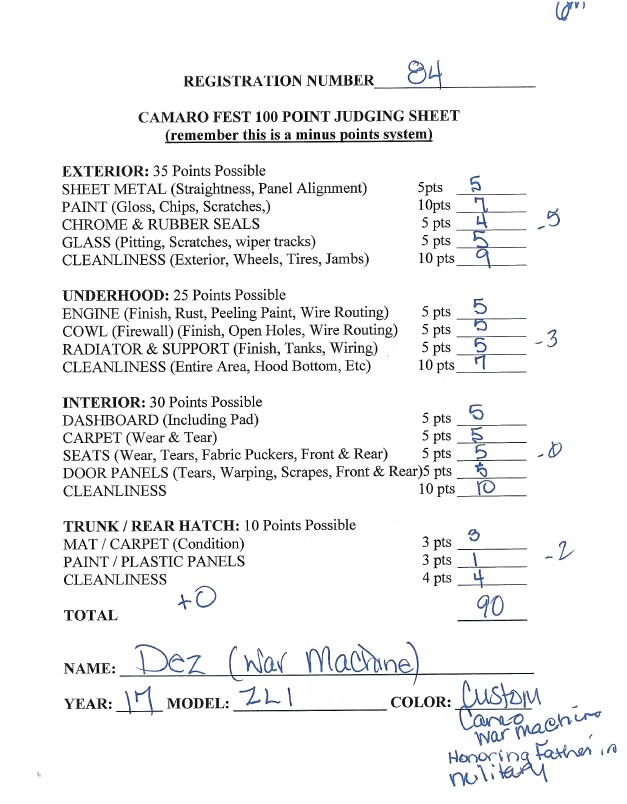 REGISTRATION NUMBER 84
CAMARO FEST 100 POINT JUDGING SHEET
(remember this is a minus points system)
EXTERIOR: 35 Points Possible
SHEET METAL (Straightness, Panel Alignment) 5pts 5
PAINT (Gloss, Chips, Scratches,) 10pts 7
CHROME & RUBBER SEALS 5 pts 4 -5
GLASS (Pitting, Scratches, wiper tracks) 5 pts 5
CLEANLINESS (Exterior, Wheels, Tires, Jambs) 10 pts 9
UNDERHOOD: 25 Points Possible
ENGINE (Finish, Rust, Peeling Paint, Wire Routing) 5 pts 5
COWL (Firewall) (Finish, Open Holes, Wire Routing) 5 pts 5
RADIATOR & SUPPORT (Finish, Tanks, Wiring) 5 pts 5 -3
CLEANLINESS (Entire Area, Hood Bottom, Etc) 10 pts 7
INTERIOR: 30 Points Possible
DASHBOARD (Including Pad) 5 pts 5
CARPET (Wear & Tear) 5 pts 5
SEATS (Wear, Tears, Fabric Puckers, Front & Rear) 5 pts 5 -0
DOOR PANELS (Tears, Warping, Scrapes, Front & Rear)5 pts 5
CLEANLINESS 10 pts 10
TRUNK / REAR HATCH: 10 Points Possible
MAT / CARPET (Condition) 3 pts 3
PAINT / PLASTIC PANELS 3 pts 1 -2
CLEANLINESS 4 pts 4
+0
TOTAL 90
NAME: Dez (War Machine)
YEAR: 17 MODEL: ZL1 COLOR: Custom
Camo
War Machine
Honoring Father in
military